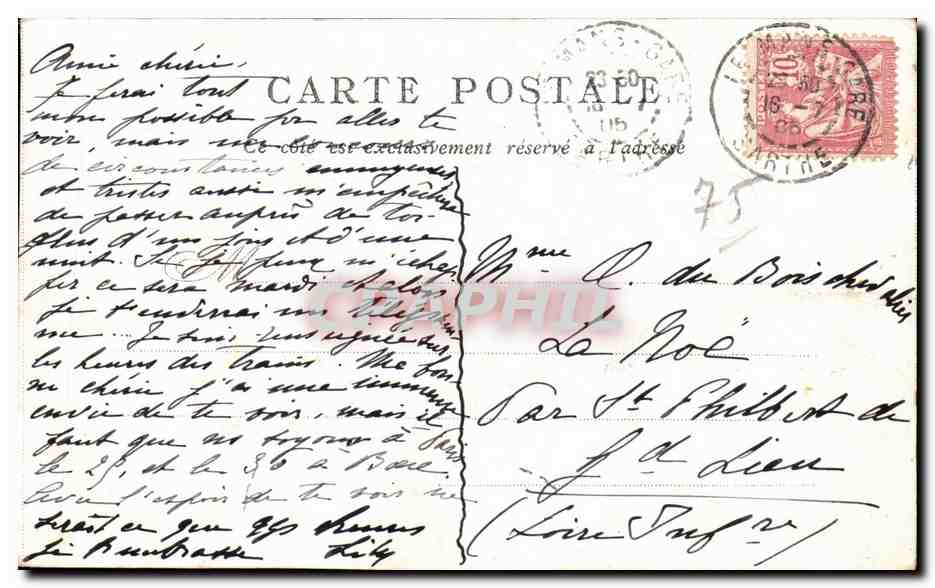 CARTE POSTALE
Ce côté est exclusivement réservé à l'adresse
LE MANS-GARE
23 50
16 -7
05
SARTHE
10
75
Amie chérie,
Je ferai tout
mon possible pr aller te
voir, mais
de circonstances ennuyeuses
et tristes aussi m'empêche
de passer auprès de toi
plus d'un jour et d'une
nuit. Si je peux m'échap
per ce sera mardi et alors
je t'enverrai un télégram
me. Je suis renseignée sur
les heures des trains. Ma bon
ne chérie j'ai une immense
envie de te voir, mais il
faut que ns soyons à Paris
le 29, et le 30 à
Avec l'espoir de te voir ne
serait ce que qqs heures
je t'embrasse Lily
Mme A. du Boischevalier
La Noë
Par St Philbert de
Gd Lieu
(Loire Infre)
CPAPHIL